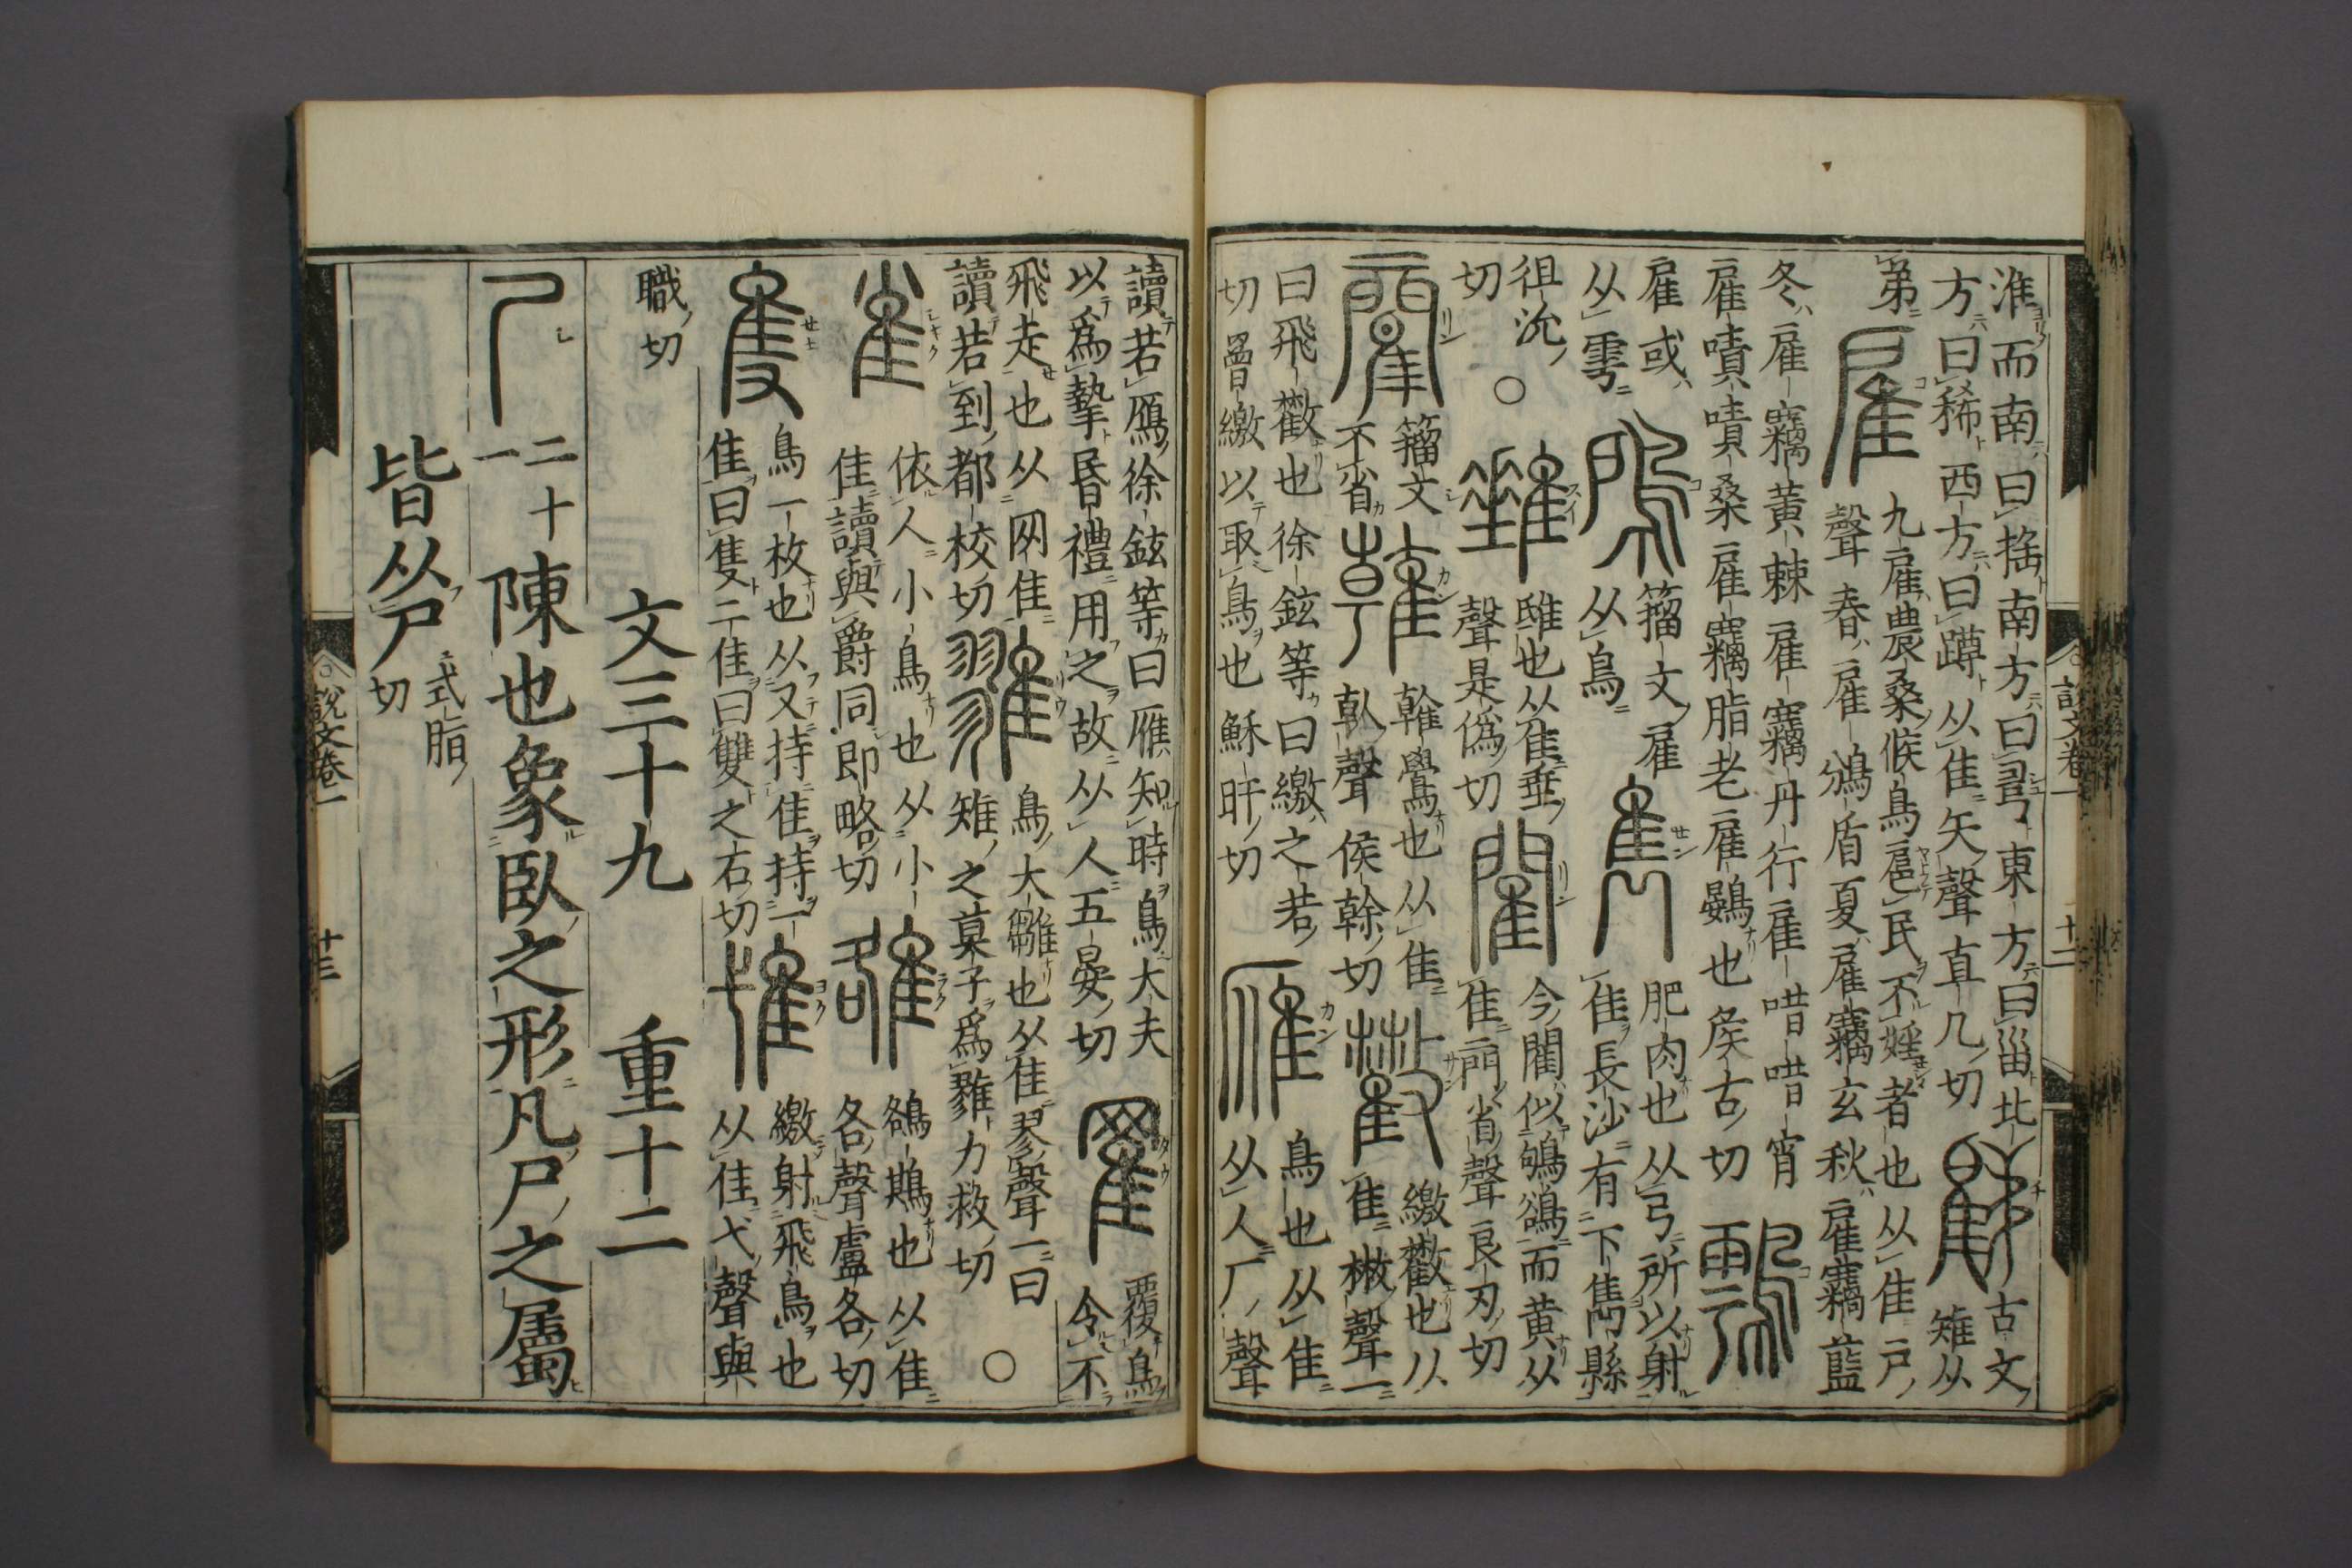 淮而南曰搖南方曰𢏚東方曰甾北
方曰稀西方曰蹲从隹矢聲直几切
古文
雉从
弟
雇
九雇農桑候鳥扈民不婬者也从隹戶
聲春雇鳻盾夏雇竊玄秋雇竊藍
冬雇竊黃棘雇竊丹行雇唶唶宵
雇嘖嘖桑雇竊脂老雇鷃也矦古切
雇或
从雩
籀文雇
从鳥
肥肉也从弓所以射
隹長沙有下雋縣
徂沇
切
○
雖也从隹垂
聲是僞切
今閵似鴝鵒而黃从
隹䨳省聲良刃切
籀文
不省
雗鷽也从隹
倝聲侯榦切
繳㪔也从
隹㪔聲一
曰飛㪔也徐鉉等曰繳之若
切矰繳以取鳥也穌旰切
鳥也从隹
从人厂聲
說文卷一
十二
讀若鴈徐鉉等曰雁知時鳥大夫
以爲摯昏禮用之故从人五晏切
覆鳥
令不
飛走也从网隹
讀若到都校切
鳥大雛也从隹翏聲一曰
雉之莫子爲雡力救切
○
雀
依人小鳥也从小
隹讀與爵同即略切
雒
鵒鵙也从隹
各聲盧各切
隻
鳥一枚也从又持隹持一
隹曰隻二隹曰雙之石切
繳射飛鳥也
从隹弋聲與
職切
文三十九 重十二
尸
二十
一
陳也象臥之形凡尸之屬
皆从尸
式脂
切
說文卷一
十三